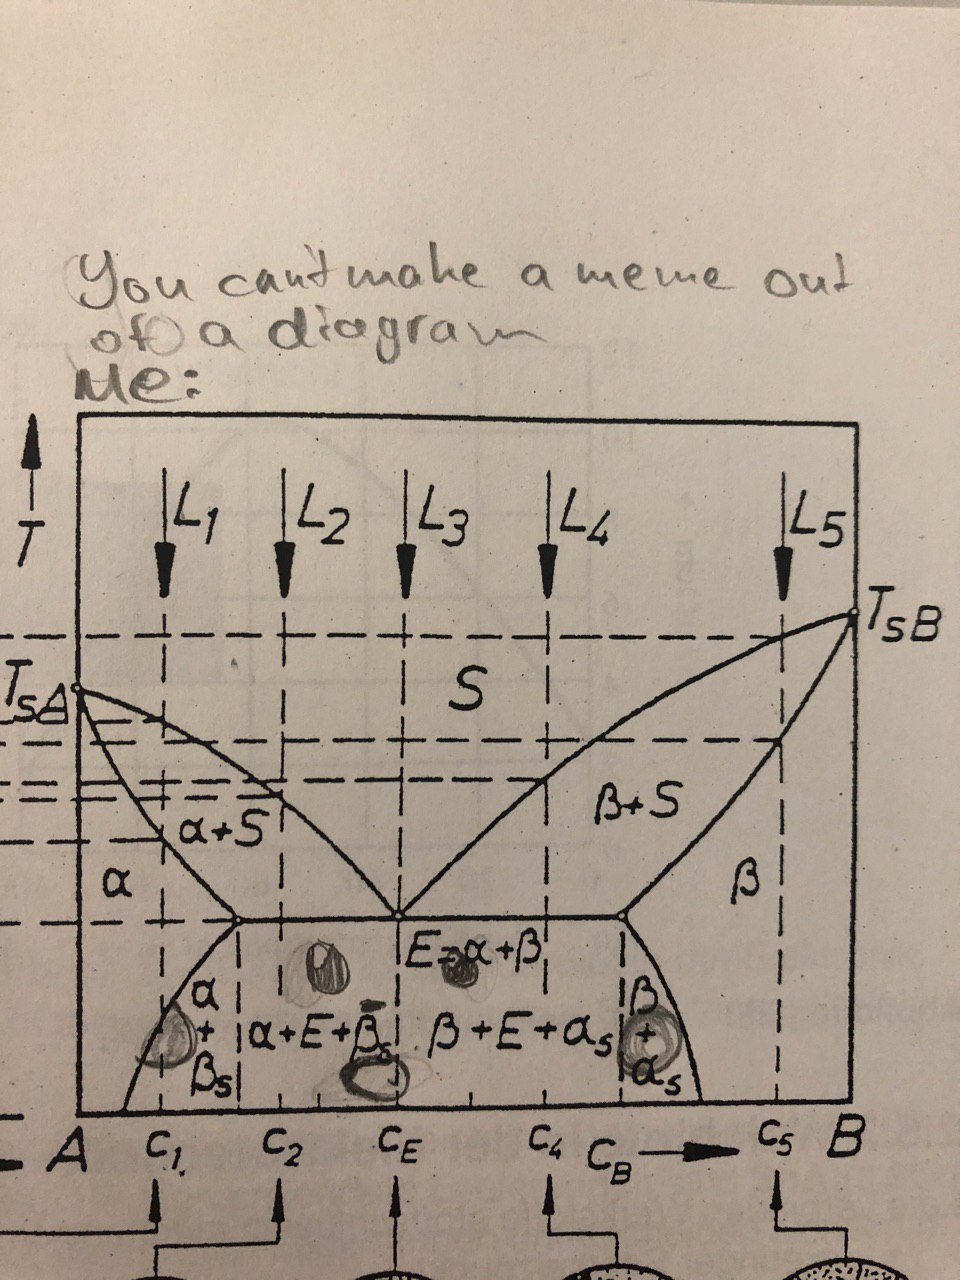 You can't make a meme out
of a diagram
Me:
T
L1 L2 L3 L4 L5
TsB
TsA
S
α+S
β+S
α
β
E=α+β
α
+
βs
α+E+βs
β+E+αs
β
+
αs
A c1 c2 cE c4 cB c5 B